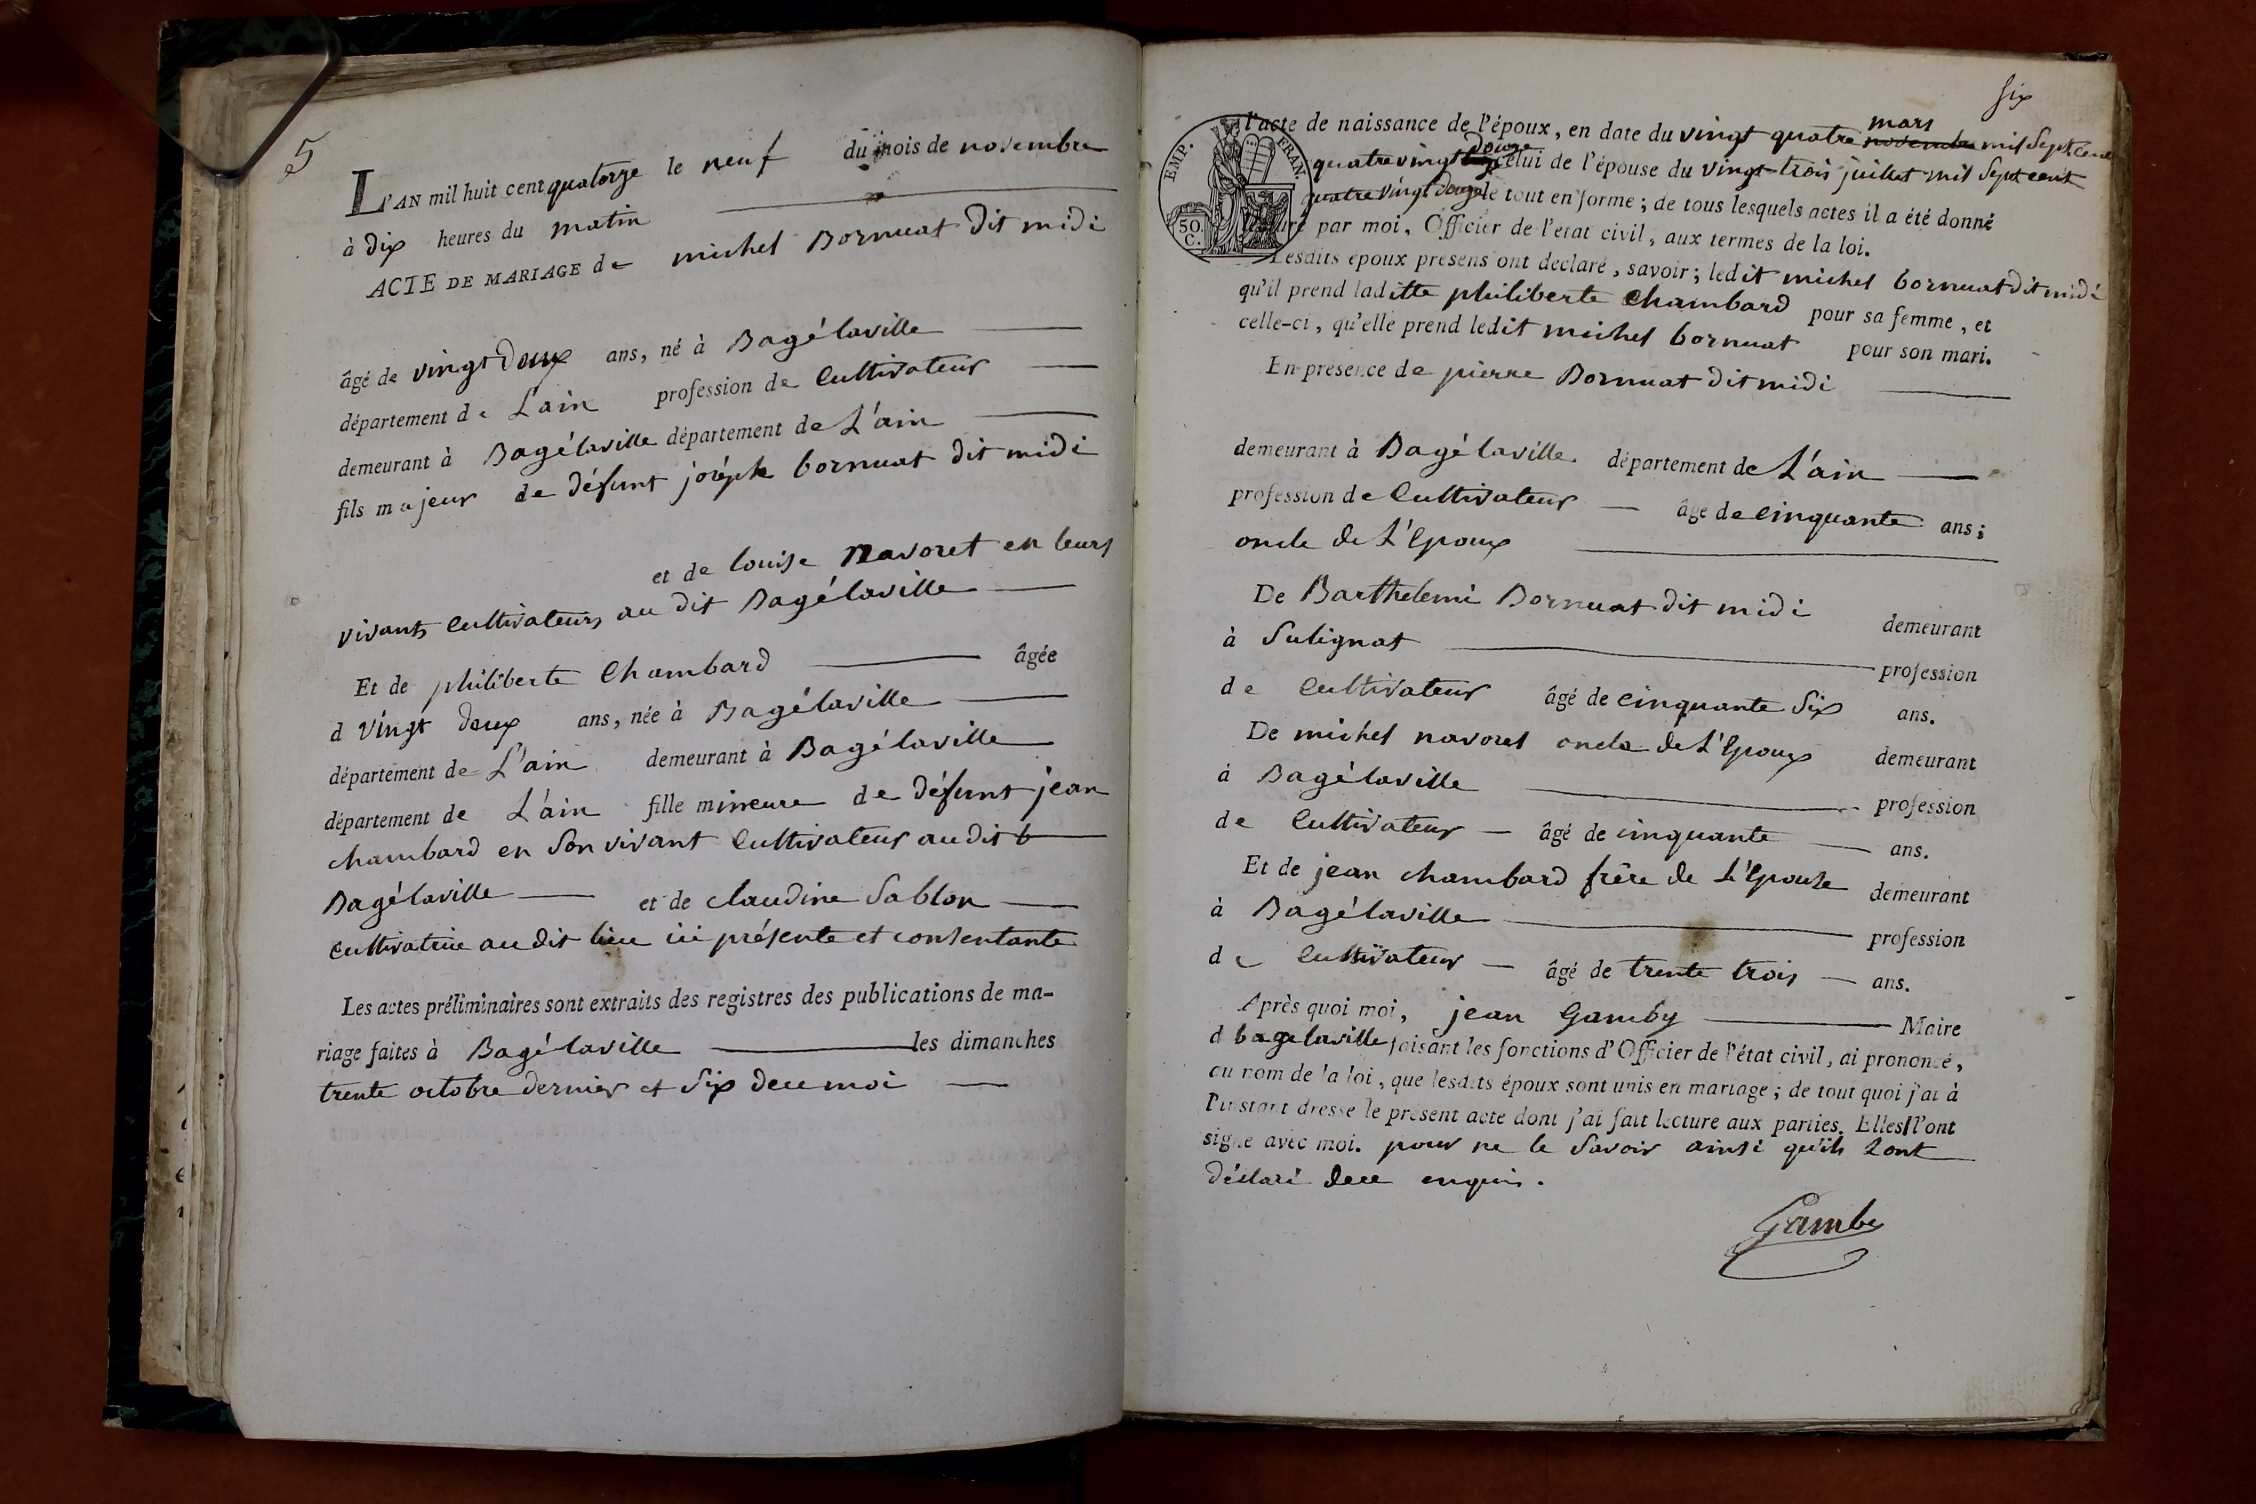 5
L'AN mil huit cent quatorze le neuf du mois de novembre
à dix heures du matin
ACTE DE MARIAGE de michel Bornuat dit midi
âgé de vingt deux ans, né à Bagélaville
département de L'ain profession de Cultivateur
demeurant à Bagélaville département de L'ain
fils majeur de défunt joséph bornuat dit midi
et de louise Navoret en leurs
vivants Cultivateurs au dit Bagélaville
Et de philiberte Chambard âgée
d vingt deux ans, née à Bagélaville
département de L'ain demeurant à Bagélaville
département de L'ain fille mineure de défunt jean
chambard en son vivant Cultivateur audit b
Bagélaville et de claudine Sablon
cultivatrice au dit lieu ici présente et consentante
Les actes préliminaires sont extraits des registres des publications de ma-
riage faites à Bagélaville les dimanches
trente octobre dernier et Six du ce moi
six
EMP. FRAN.
50 C.
mars
l'acte de naissance de l'époux, en date du vingt quatre novembre mil Sept cent
douze
quatrevingt celui de l'épouse du vingt-trois juillet mil Sept cent
quatre vingt douze le tout en forme; de tous lesquels actes il a été donné
lecture par moi, Officier de l'etat civil, aux termes de la loi.
Lesdits époux présens ont declaré, savoir; ledit michel bornuat dit midi
qu'il prend laditte philiberte Chambard pour sa femme, et
celle-ci, qu'elle prend ledit michel bornuat pour son mari.
En presence de pierre Bornuat dit midi
demeurant à Bagélaville département de L'ain
profession de Cultivateur âge de cinquante ans;
oncle de L'Epoux
De Barthelemi Bornuat dit midi demeurant
à Sulignat profession
de Cultivateur âgé de cinquante Six ans.
De michel navoret oncle de L'Epoux demeurant
à Bagélaville profession
de Cultivateur âgé de cinquante ans.
Et de jean chambard frère de L'Epouse demeurant
à Bagélaville profession
de Cultivateur âgé de trente trois ans.
Après quoi moi, jean Gamby Maire
d bagelaville faisant les fonctions d'Officier de l'état civil, ai prononcé,
au nom de la loi, que lesdits époux sont unis en mariage; de tout quoi j'ai à
l'instant dresse le présent acte dont j'ai fait lecture aux parties. Elles l'ont
signé avec moi. pour ne le Savoir ainsi qu'ils Lont
déclaré de ce enquis.
Gamby